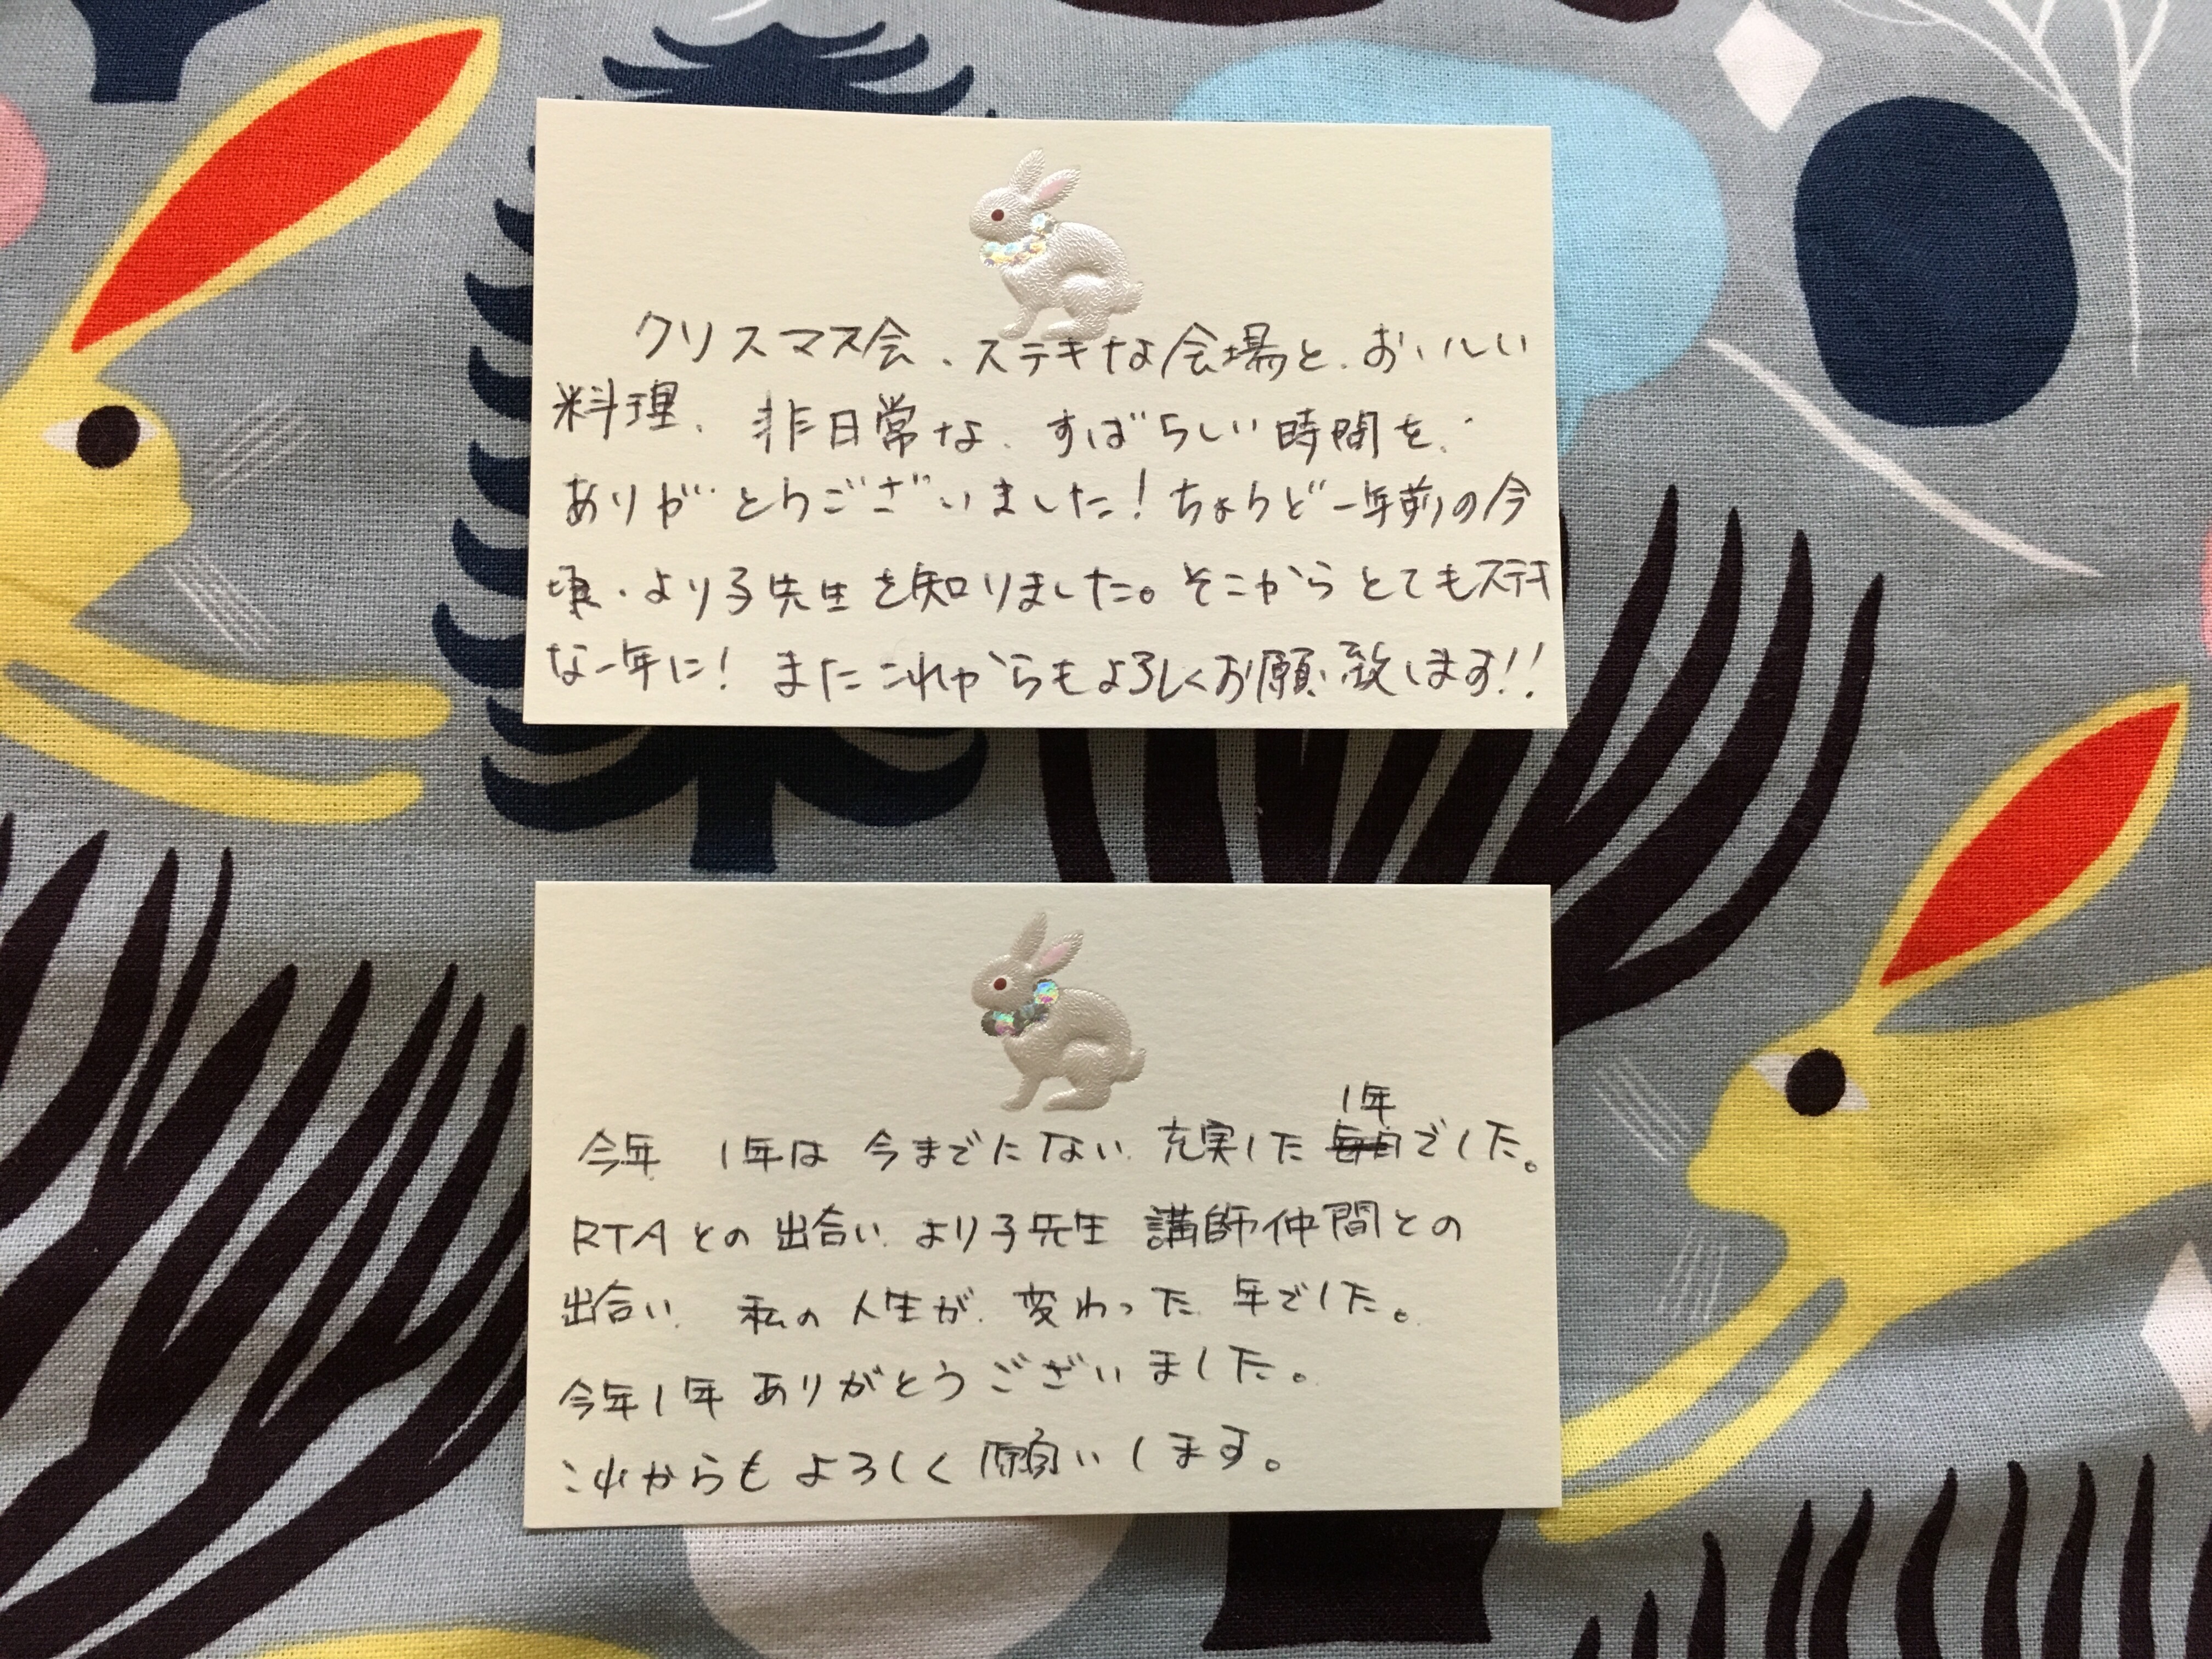 クリスマス会、ステキな会場と、おいしい
料理、非日常な、すばらしい時間を、
ありがとうございました!ちょうど一年前の今
頃、より子先生を知りました。そこからとてもステキ
な一年に!またこれからもよろしくお願い致します!!
1年
今年 1年は 今までにない 充実した 毎日でした。
RTAとの出合い、より子先生 講師仲間との
出合い、私の人生が、変わった 年でした。
今年1年 ありがとうございました。
これからも よろしく願いします。